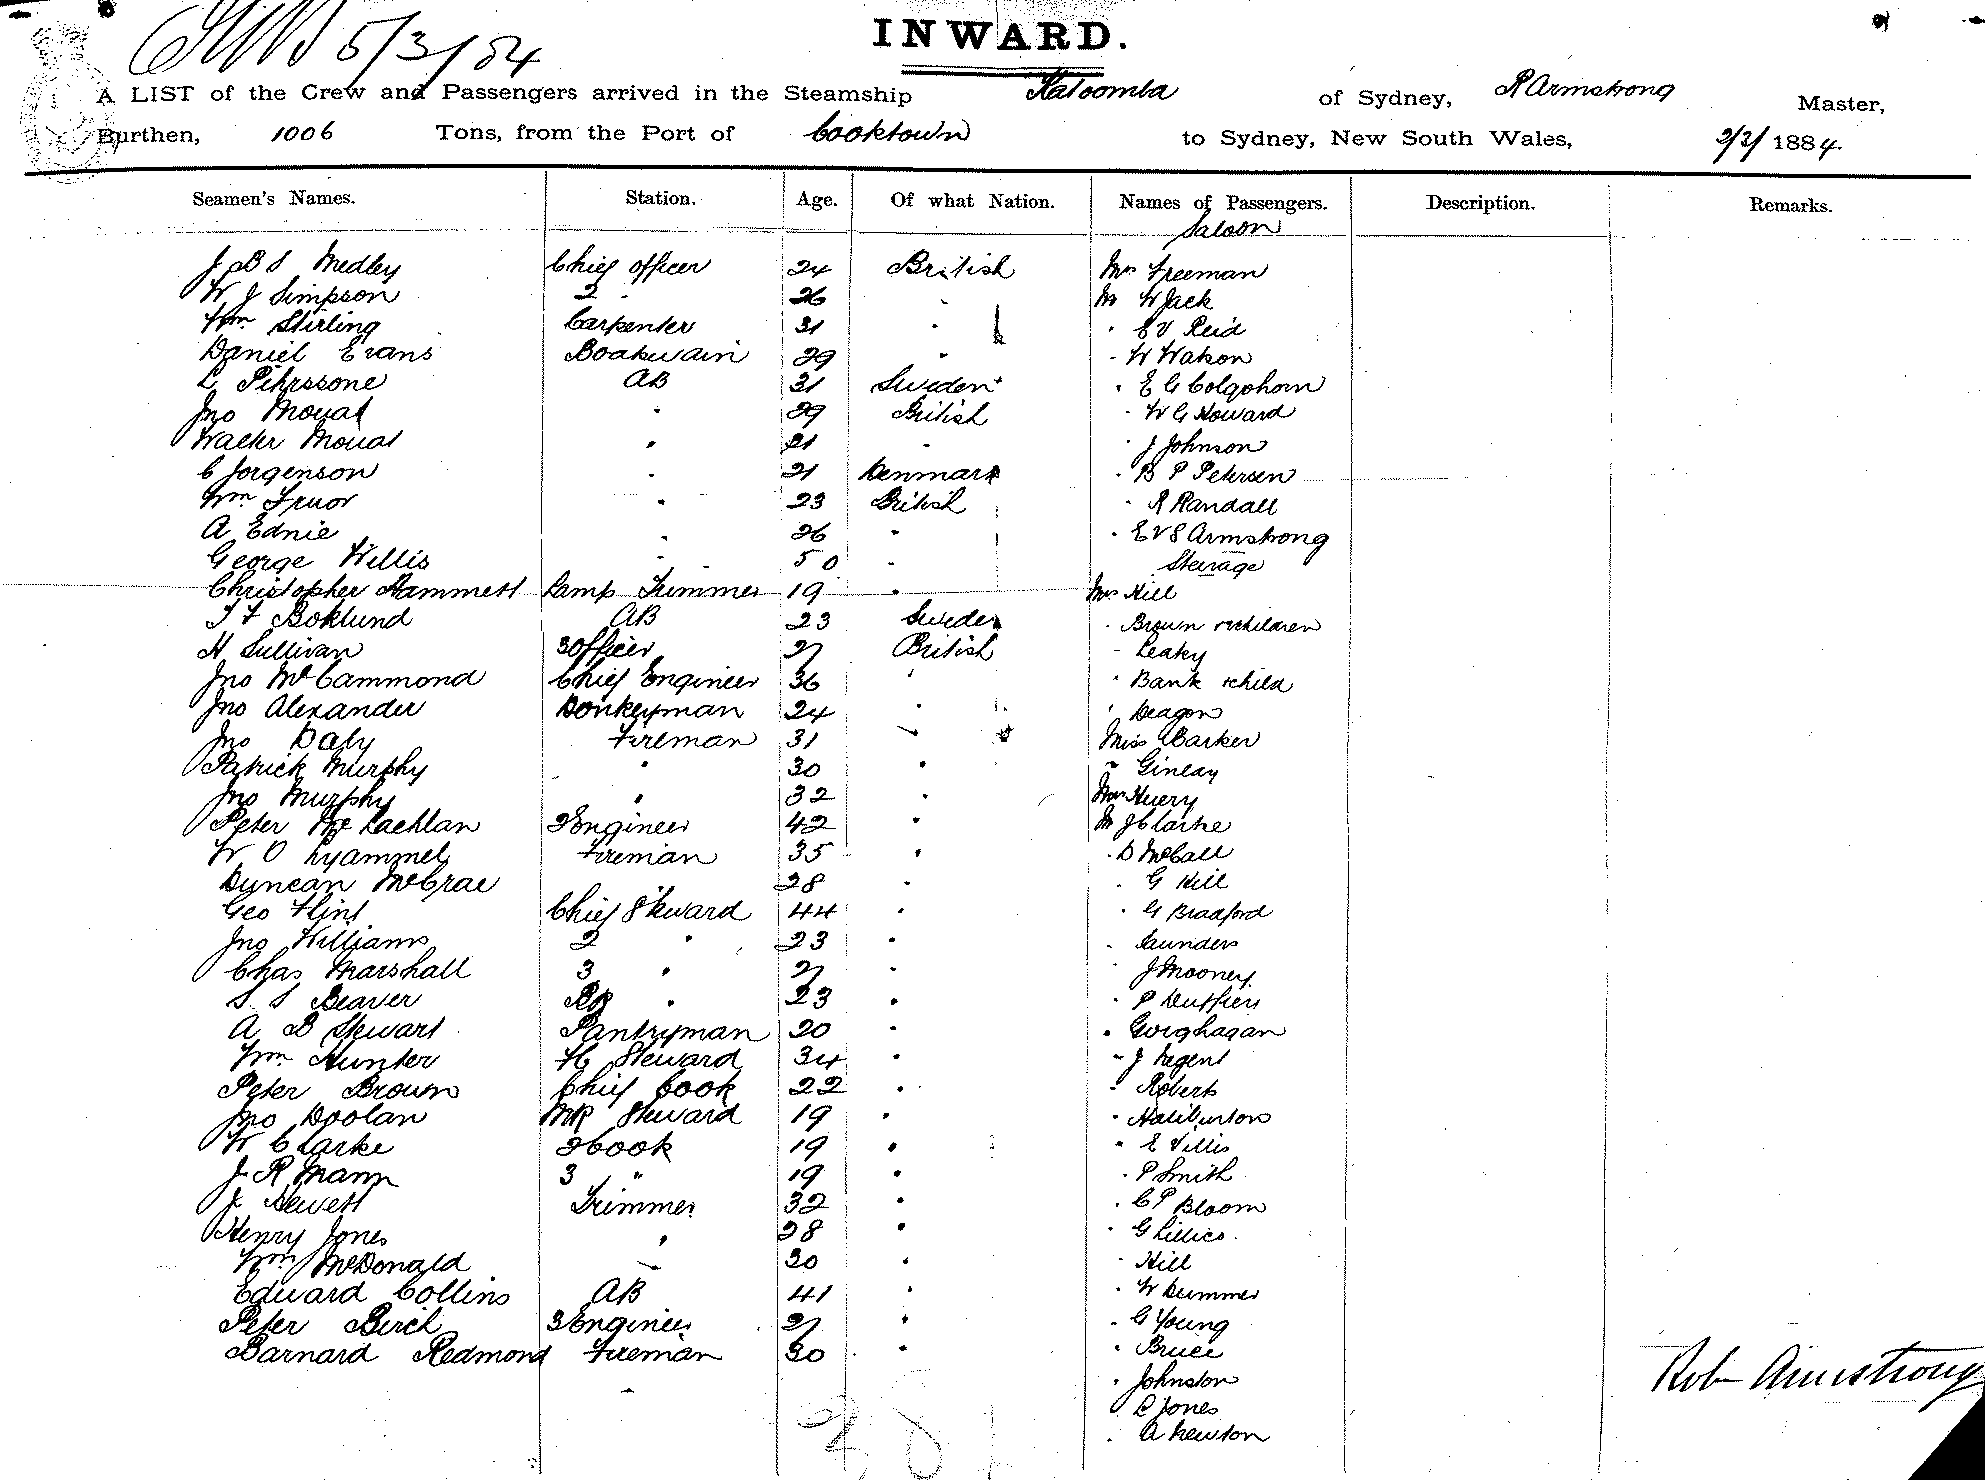 5/3/84
INWARD.
A LIST of the Crew and Passengers arrived in the Steamship Katoomba of Sydney, R Armstrong Master,
Burthen, 1006 Tons, from the Port of Cooktown to Sydney, New South Wales, 2/3/ 1884.
Seamen's Names. Station. Age. Of what Nation. Names of Passengers. Description. Remarks.
Saloon
J B S Medley Chief Officer 24 British Mrs Freeman
W J Simpson 2 " 26 " Mr W Jack
Wm Stirling Carpenter 31 " " E V Reid
Daniel Evans Boatswain 29 " " W Watson
L Pihrssone AB 31 Sweden " E G Colqohorn
Jno Mouat " 29 British " W G Howard
Walter Mouat " 21 " " J Johnson
C Jorgenson " 21 Denmark " B P Petersen
Wm Fruor " 23 British " R Randall
A Ednie " 26 " " E V S Armstrong
George Willis " 50 " Steerage
Christopher Hammett Lamp Trimmer 19 " Mrs Hill
T F Boklund AB 23 Sweden " Brown & children
H Sullivan 3 Officer 27 British " Leaky
Jno McCammond Chief Engineer 36 " " Bank & child
Jno Alexander Donkeyman 24 " " Deagon
Jno Daly Fireman 31 " Miss Barker
Patrick Murphy " 30 " " Ginlay
Jno Murphy " 32 " Mrs Huery
Peter McLachlan 2 Engineer 42 " Mr J Clarke
W O Lyammel Fireman 35 " " D McCall
Duncan McCrae 28 " " G Hill
Geo Flint Chief Steward 44 " " G Bradford
Jno Williams 2 " 23 " " Saunders
Chas Marshall 3 " 27 " " J Mooney
S S Beaver " 23 " " P Duffien
A B Stewart Pantryman 20 " " Gorghagan
Wm Hunter FC Steward 34 " " J Regent
Peter Brown Chief Cook 22 " " Roberts
Jno Doolan MR Steward 19 " " Haliburton
W Clarke 2 Cook 19 " " E Villis
J R Mann 3 " 19 " " P Smith
J Hewett Trimmer 32 " " C P Bloom
Henry Jones " 28 " " G Lillico
Wm McDonald " 30 " " Hill
Edward Collins AB 41 " " W Dummer
Peter Birch 3 Engineer 27 " " G Young
Barnard Redmond Fireman 30 " " Bruce
" Johnston
L Jones
" A Newton
Robt Armstrong